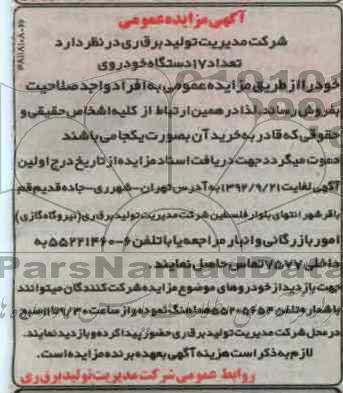 آگهی مزایده عمومی
شرکت مدیریت تولید برق ری در نظر دارد
تعداد ۱۷ دستگاه خودروی
خود را از طریق مزایده عمومی به افراد واجد صلاحیت
بفروش رساند. لذا در همین ارتباط از کلیه اشخاص حقیقی و
حقوقی که قادر به خرید آن بصورت یکجا می باشند
دعوت میگردد جهت دریافت اسناد مزایده از تاریخ درج اولین
آگهی لغایت ۱۳۹۲/۹/۲۱ به آدرس تهران-شهرری-جاده قدیم قم
باقرشهر انتهای بلوار فلسطین شرکت مدیریت تولید برق ری (نیروگاه گازی)
امور بازرگانی و انبار مراجعه یا با تلفن ۶-۵۵۲۲۱۴۶۰ به
داخلی ۷۵۷۷ تماس حاصل نمایند
جهت بازدید از خودروهای موضوع مزایده شرکت کنندگان میتوانند
با شماره تلفن ۵۵۲۰۵۶۵۴ هماهنگ نموده و از ساعت ۹/۳۰ تا ۱۱ صبح
در محل شرکت مدیریت تولید برق ری حضور پیدا کرده و بازدید نمایند.
لازم به ذکر است هزینه آگهی بعهده برنده مزایده است.
روابط عمومی شرکت مدیریت تولید برق ری
ParsNamadData